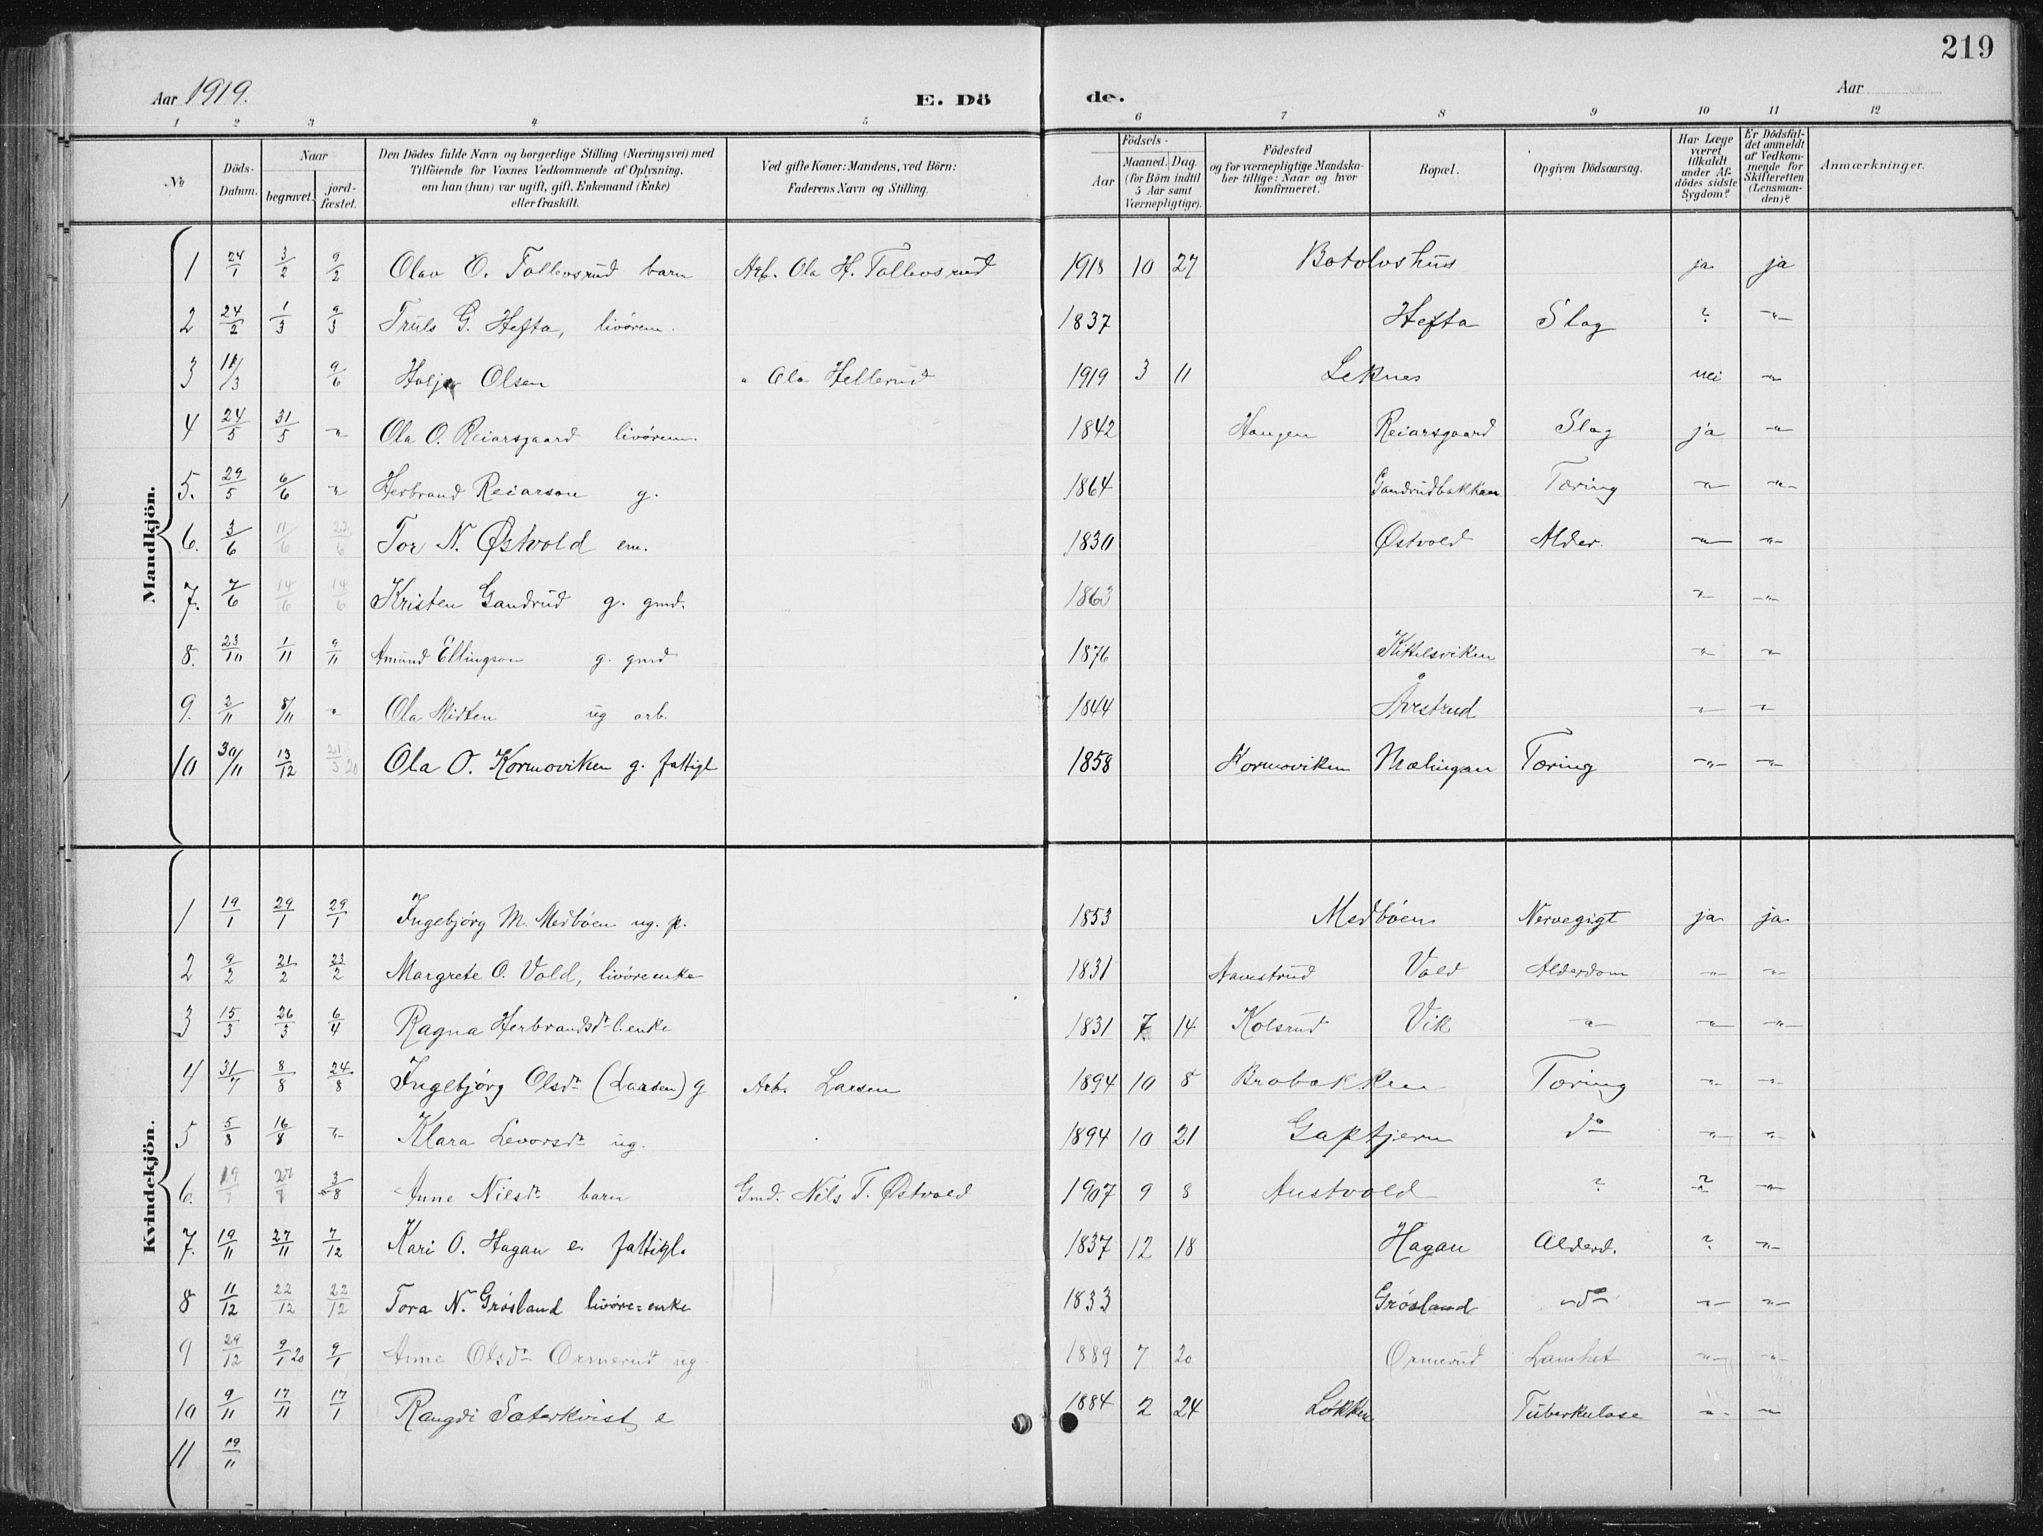 219
Aar 1919.
E. Dö
de.
Aar
1 2 3 4 5 6 7 8 9 10 11 12
№
Döds-Datum.
Naar
begravet.
jord-fæstet.
Den Dödes fulde Navn og borgerlige Stilling (Næringsvei) med
Tilföiende for Voxnes Vedkommende af Oplysning,
om han (hun) var ugift, gift, Enkemand (Enke)
eller fraskilt.
Ved gifte Koner: Mandens, ved Börn:
Faderens Navn og Stilling.
Födsels-
Aar
Maaned. Dag.
(for Börn indtil
5 Aar samt
Værnepligtige).
Födested
og for værnepligtige Mandska-
ber tillige: Naar og hvor
konfirmeret.
Bopæl.
Opgiven Dödsaarsag.
Har Læge
været
tilkaldt
under Af-
dödes sidste
Sygdom?
Er Dödsfal-
det anmeldt
af Vedkom-
mende for
Skifteretten
(Lensman-
den)?
Anmærkninger.
Mandkjön.
1 24/1 3/2 9/2 Olav O. Tollevsrud barn Arb. Ola H. Tollevsrud 1918 10 27 Botolvshus ja ja
2 24/2 1/3 9/3 Truls G. Hefta, livörem. 1837 Hefta Slag ? -"-
3 11/3 9/6 Olsen " Ola Hellerud 1919 3 11 Leknes nei -"-
4 24/5 31/5 -"- Ola O. Reiarsgaard livörem. 1842 Haugen Reiarsgaard Slag ja -"-
5. 29/5 6/6 -"- Herbrand Reiarson g. 1864 Gandrudbakken Tæring -"- -"-
6. 3/6 11/6 22/6 Tor N. Østvold em. 1830 Østvold Alder. -"- -"-
7. 7/6 14/6 14/6 Kristen Gandrud g. gmd. 1863 -"- -"-
8. 23/10 1/11 9/11 Amund Ellingson g. gmd 1876 Kittilsviken -"- -"-
9. 2/11 8/11 -"- Ola Midten ug arb. 1844 Åvestrud -"- -"-
10 30/11 13/12 21/5 20 Ola O. Kormoviken g. fattigl 1858 Kormoviken Mælingan Tæring -"- -"-
Kvindekjön.
1 19/1 29/1 29/1 Ingebjörg M. Medböen ug. p. 1853 Medböen Nervegigt ja ja
2 9/2 21/2 23/2 Margrete O. Vold, livöreenke 1831 Aavestrud Vold Alderdom -"- -"-
3 15/3 26/3 6/4 Ragna Herbrandsdr l.enke 1831 7 14 Kolsrud Vik -"- -"- -"-
4 31/7 8/8 24/8 Ingebjörg Olsdr (Larsen) g Arb. Larsen 1894 10 8 Brobakken Tæring -"- -"-
5 5/8 16/8 -"- Klara Levorsdr ug. 1894 10 21 Gaptjern do -"- -"-
6. 3/8 Anne Nielsdr barn Gmd. Nils T. Østvold 1907 9 8 Austvold ? ? -"-
7. 19/11 27/11 7/12 Kari O. Hagan e. fattigl. 1837 12 18 Hagan Alderd. ? -"-
8 11/12 22/12 22/12 Tora N. Grösland livöre=enke 1833 Grösland -do- -"- -"-
9 29/12 9/1 20 9/1 Anne Olsdr Ormerud ug. 1889 7 20 Ormerud Lamhet -"- -"-
10 9/11 17/11 17/1 Rangdi Sæterkvist e 1884 2 24 Løkken Tuberkulose -"- -"-
11 19/11